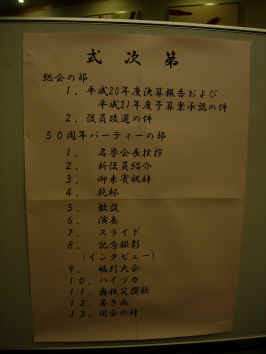 式次第
総会の部
1. 平成20年度決算報告および
平成21年度予算案承認の件
2. 役員改選の件
50周年パーティーの部
1. 名誉会長挨拶
2. 新役員紹介
3. 御来賓祝辞
4. 乾杯
5. 歓談
6. 演奏
7. スライド
8. 記念撮影
(インタビュー)
9. 福引大会
10.
11.
12.
13. 閉会の辞